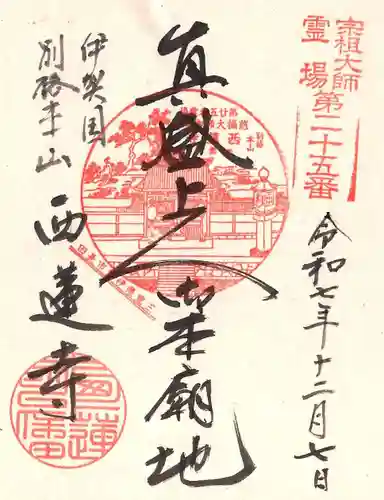 宗祖大師
霊場第二十五番
令和七年十二月七日
真盛上人御廟地
伊賀国
別格本山 西蓮寺